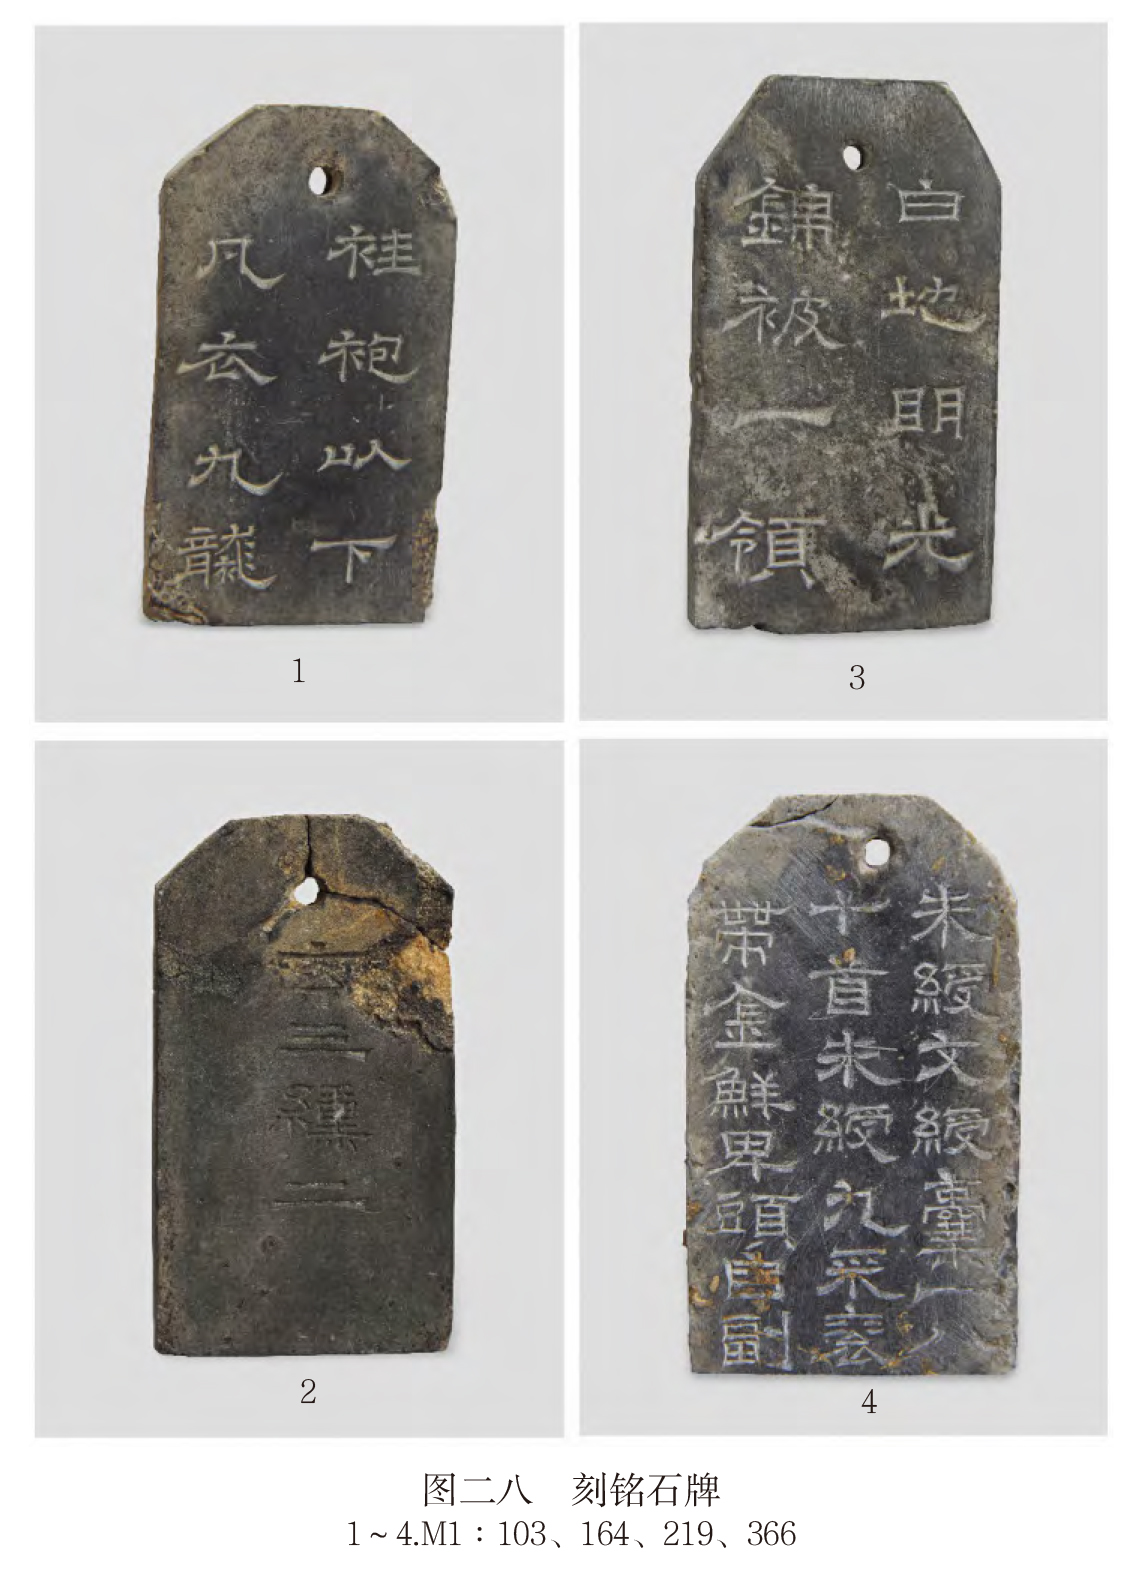 袿袍以下
凡衣九襲
1
玄三纁二
2
白地明光
錦被一領
3
朱綬文綬囊一八
十首朱綬九采衮
帶金鮮卑頭自副
4
图二八　刻铭石牌
1～4.M1：103、164、219、366